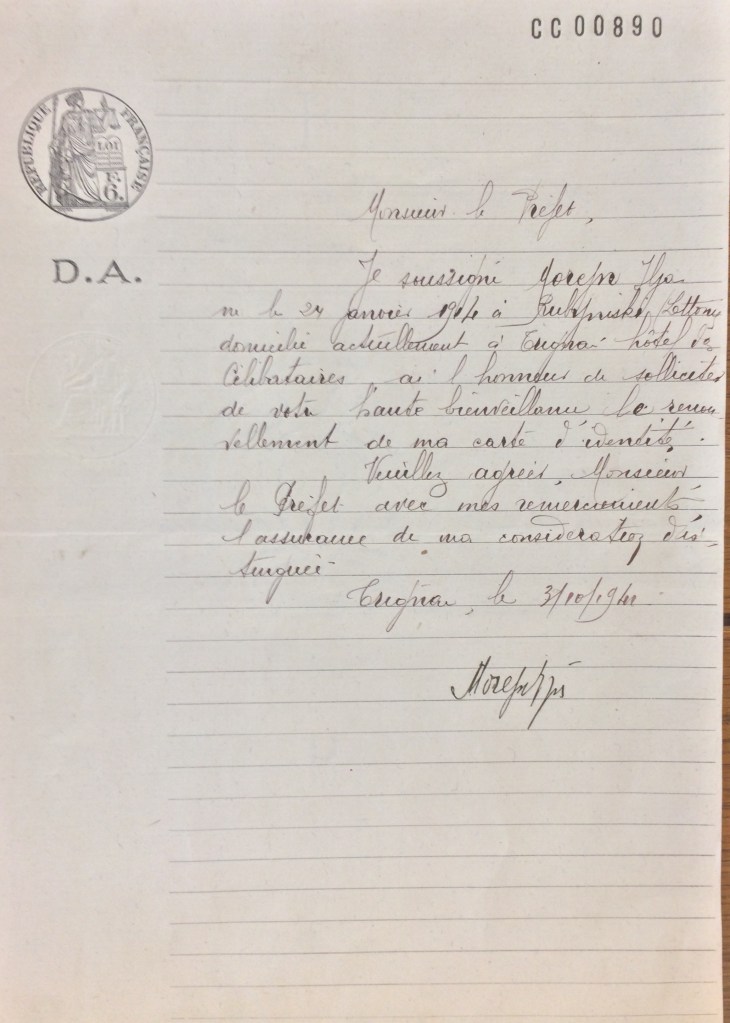 CC00890
RÉPUBLIQUE FRANÇAISE
LOI
F.
6.
D.A.
Monsieur le Préfet,
Je soussigné
né le 27 janvier 1914 à
domicilié actuellement à Trignac hôtel des
Célibataires, ai l'honneur de solliciter
de votre haute bienveillance le renou-
vellement de ma carte d'identité.
Veuillez agréer, Monsieur
le Préfet avec mes remerciements
l'assurance de ma consideration dis-
tinguée
Trignac, le 3/10/1941